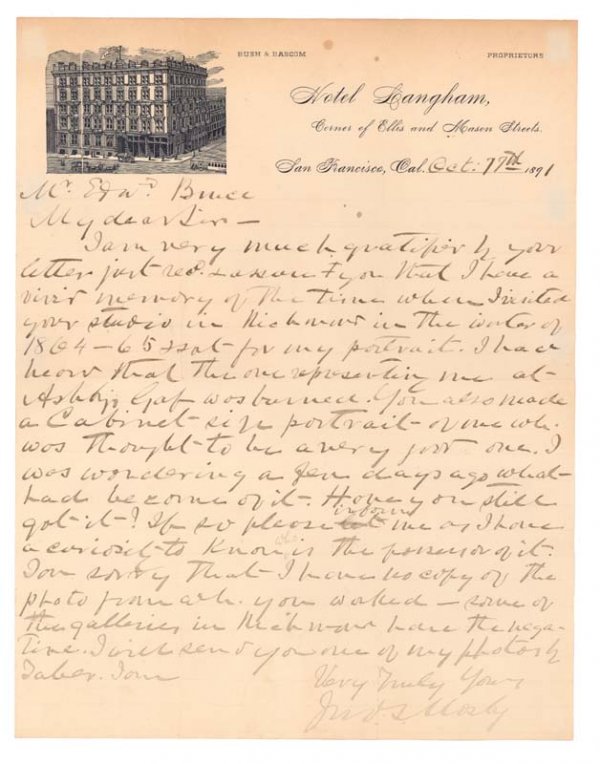 BUSH & BASCOM PROPRIETORS
Hotel Langham,
Corner of Ellis and Mason Streets.
San Francisco, Cal. Oct. 17th 1891
Mr. Edwd Bruce
My dear Sir –
I am very much gratified by your
letter just rec. & assure you that I have a
vivid memory of the time when I visited
your studio in Richmond in the winter of
1864–65 & sat for my portrait. I had
heard that the one representing me at
Ashby's Gap was burned. You also made
a Cabinet size portrait of me wh.
was thought to be a very good one. I
was wondering a few days ago what
had become of it. Have you still
got it? If so please inform me as I have
a curiosity to Know who is the possessor of it.
I am sorry that I have no copy of the
photo from wh. you worked – some of
the galleries in Richmond have the nega-
tive. I will send you one of my photos by
Taber. I am
Very Truly Yours
Jno S Mosby